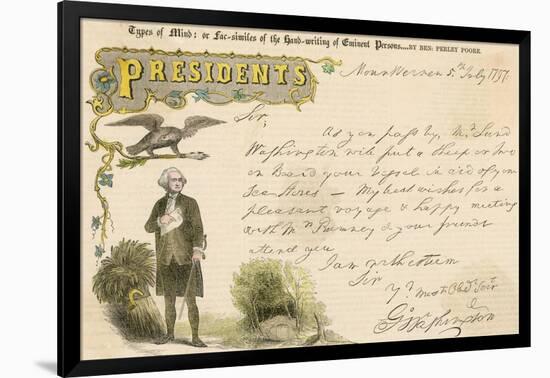 Types of Mind: or Fac-similes of the Hand-writing of Eminent Persons....BY BEN: PERLEY POORE.
PRESIDENTS
Mount Vernon 5th July 1797.
Sir,
As you pass by, Mr. Lund
Washington will put a sheep or two
on Board your Vessel in aid of your
Sea Stores — My best wishes for a
pleasant voyage & happy meeting
with Mrs. & your friends
attend you
I am with esteem
Sir
Yr. most Obedt. Servt.
Go. Washington